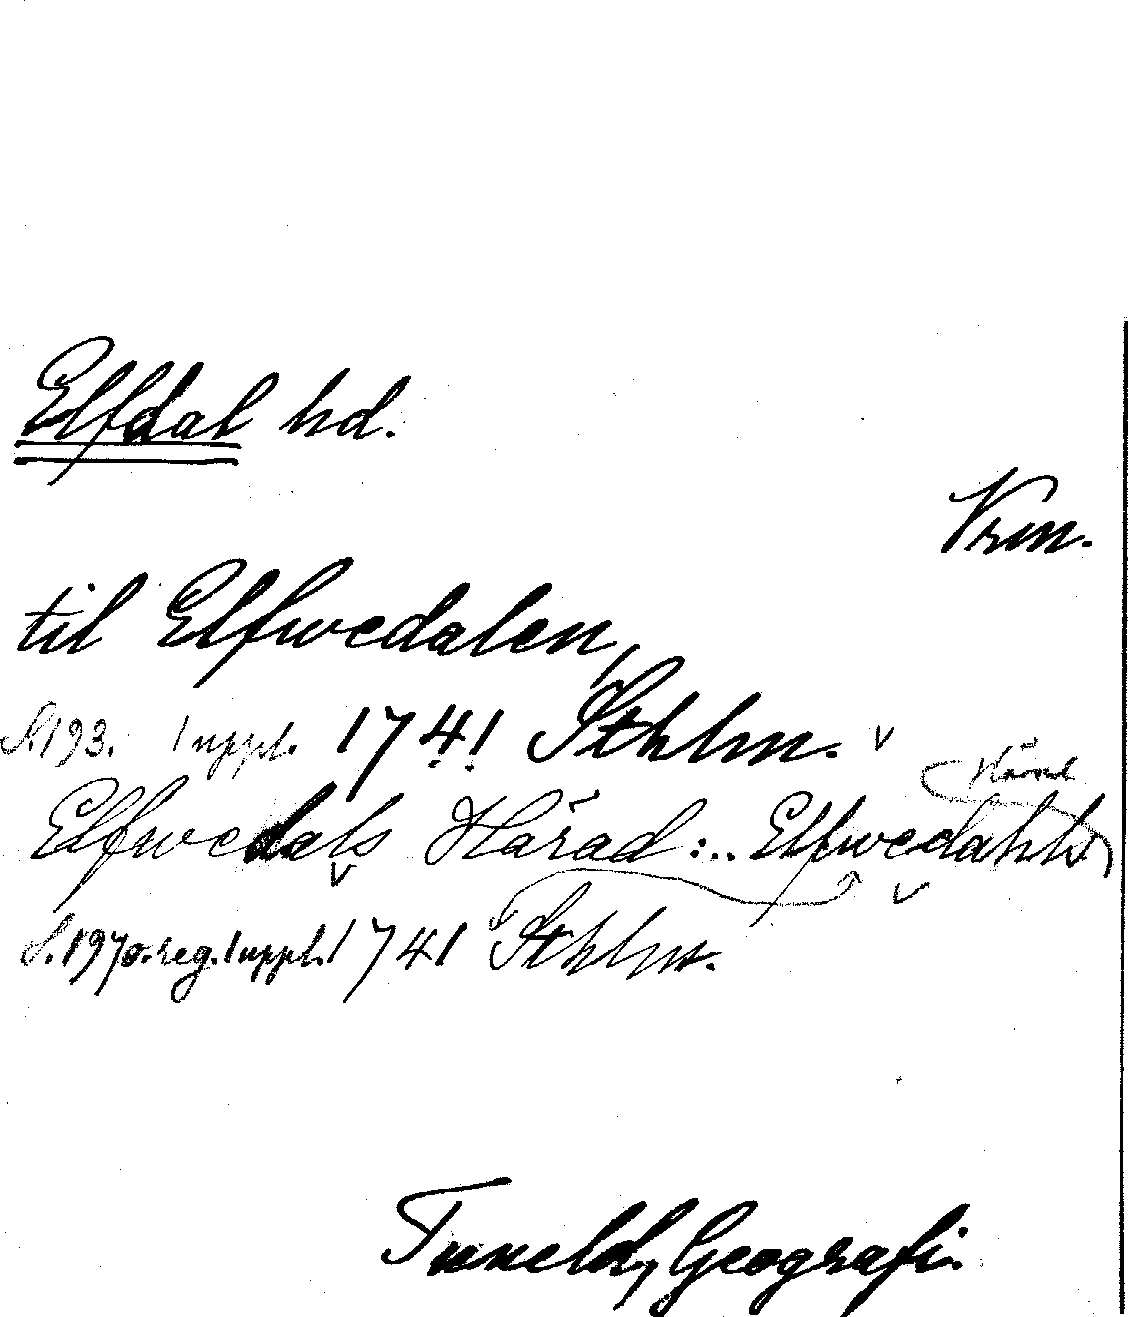 Elfdal hd.
Vrm.
til Elfwedalen,
S. 193. 1 uppl. 1741 Sthlm.
Härad
Elfwedals Härad:.. Elfwedahls
S. 197 o. reg. 1 uppl. 1741 Sthlm.
Tuneld, Geografi.